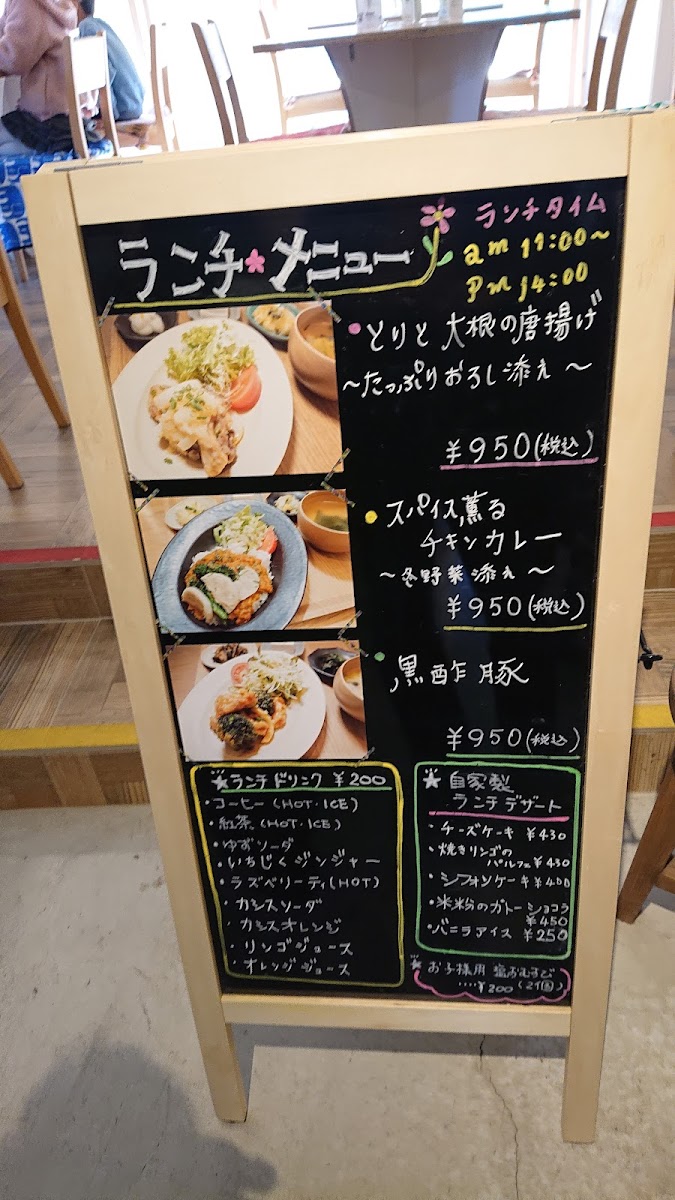 ランチ メニュー
ランチタイム
am 11:00〜
pm 14:00
とりと大根の唐揚げ
〜たっぷりおろし添え〜
¥950(税込)
スパイス薫る
チキンカレー
〜冬野菜添え〜
¥950(税込)
黒酢豚
¥950(税込)
★ランチドリンク ¥200
・コーヒー(HOT・ICE)
・紅茶(HOT・ICE)
・ゆずソーダ
・いちじくジンジャー
・ラズベリーティ(HOT)
・カシスソーダ
カシスオレンジ
・リンゴジュース
・オレンジジュース
★自家製
ランチデザート
・チーズケーキ ¥430
・焼きリンゴの
パルフェ ¥430
・シフォンケーキ ¥400
・米粉のガトーショコラ
¥450
・バニラアイス ¥250
★お子様用 塩おむすび
‥‥¥200(2個)